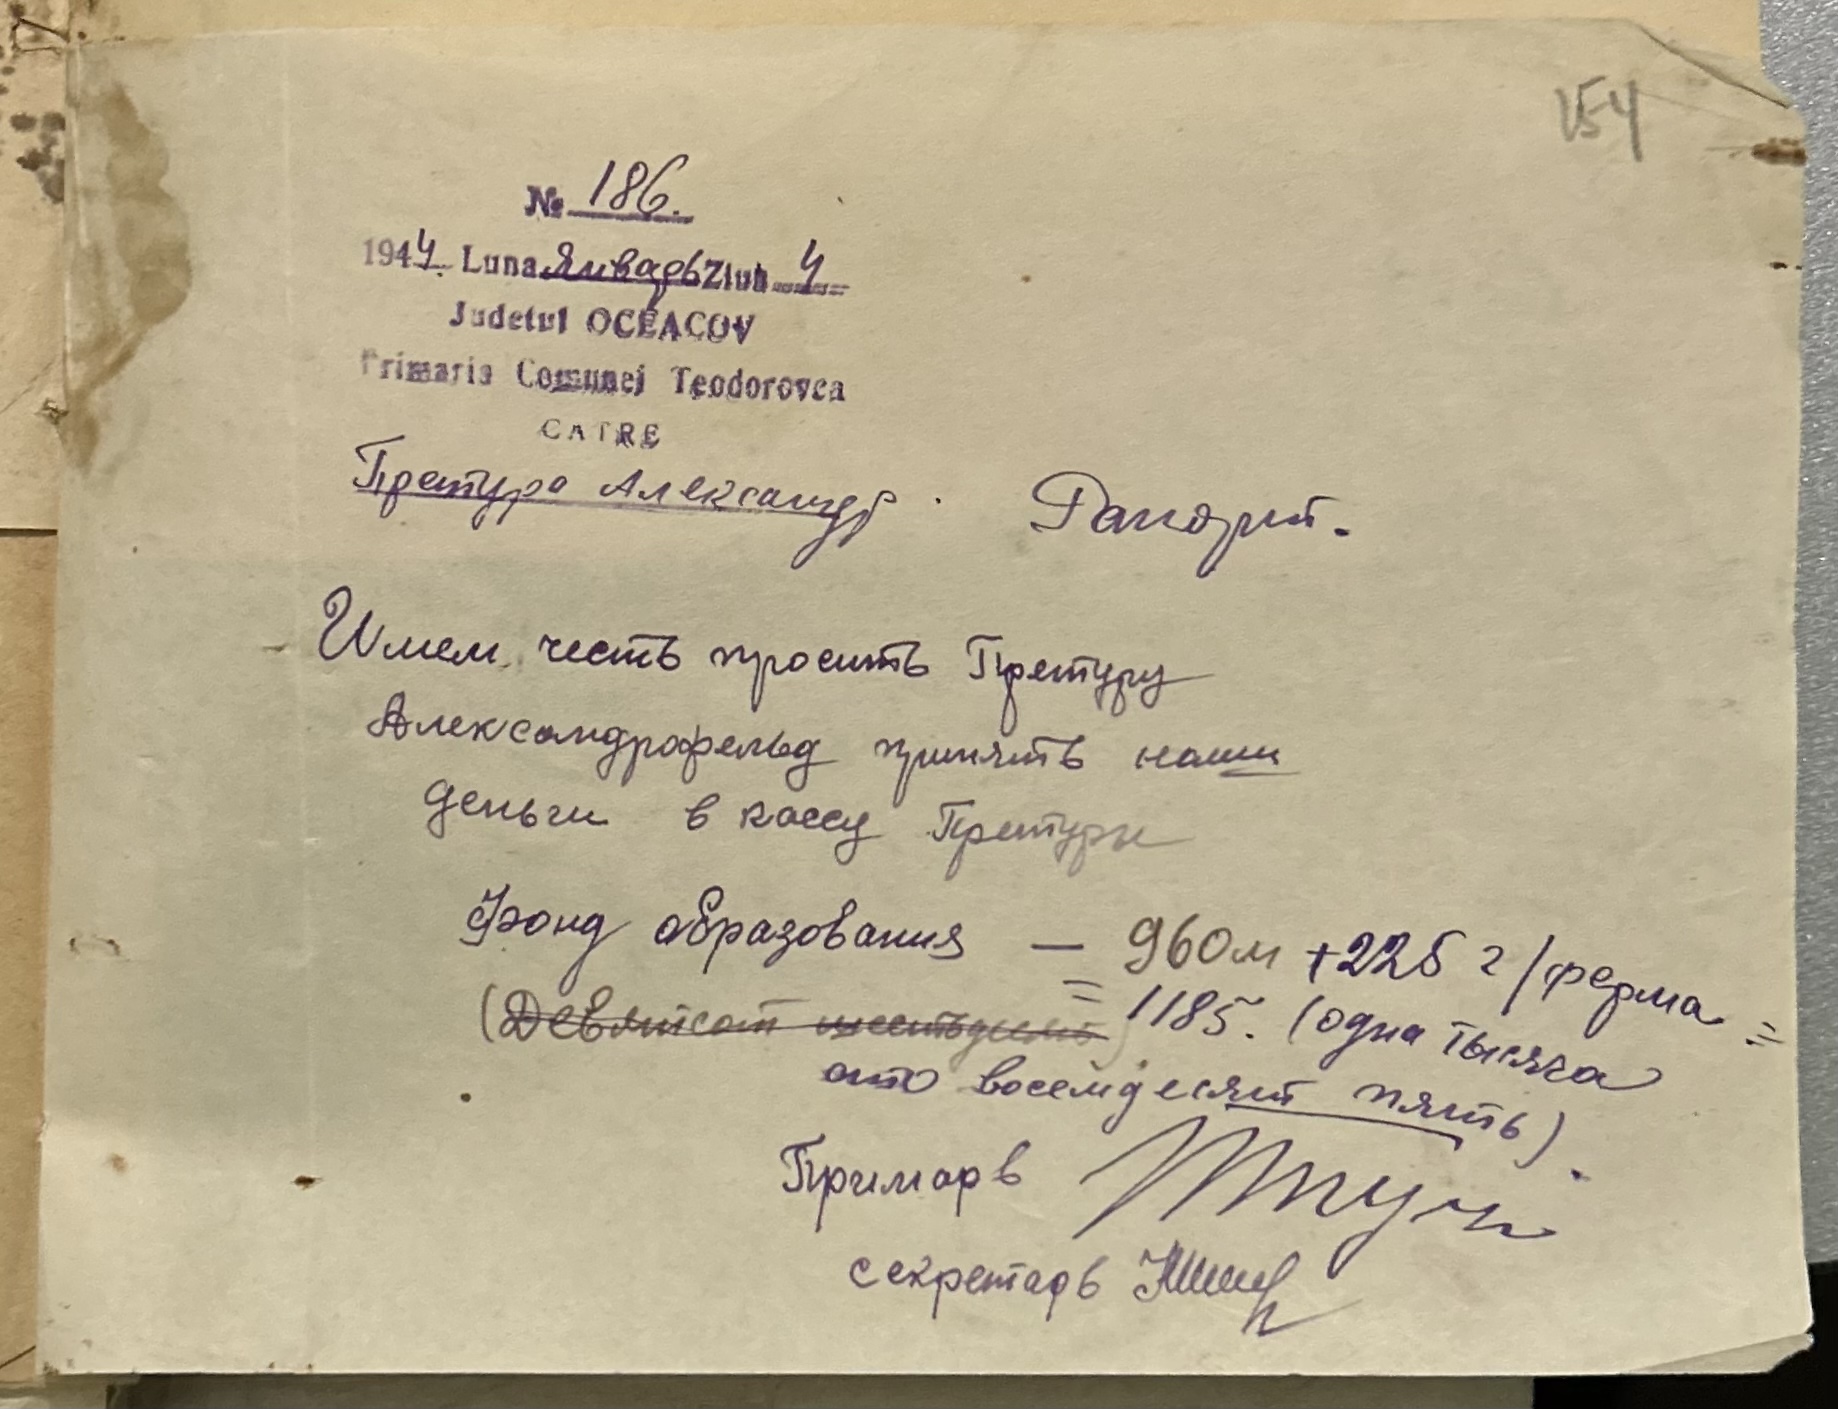 154
№ 186.
1944. Luna Январь Ziua 4
Judetul OCEACOV
Primaria Comunei Teodorovca
CATRE
Претура Александр. Рапорт.
Имем честь просить Претуру
Александрофельд принять наши
деньги в кассу Претуры
Фонд образования — 960 м + 225 г/ферма =
(Девятсот шестьдесят) = 1185. (одна тысяча
сто восемдесят пять).
Примарь
секретарь